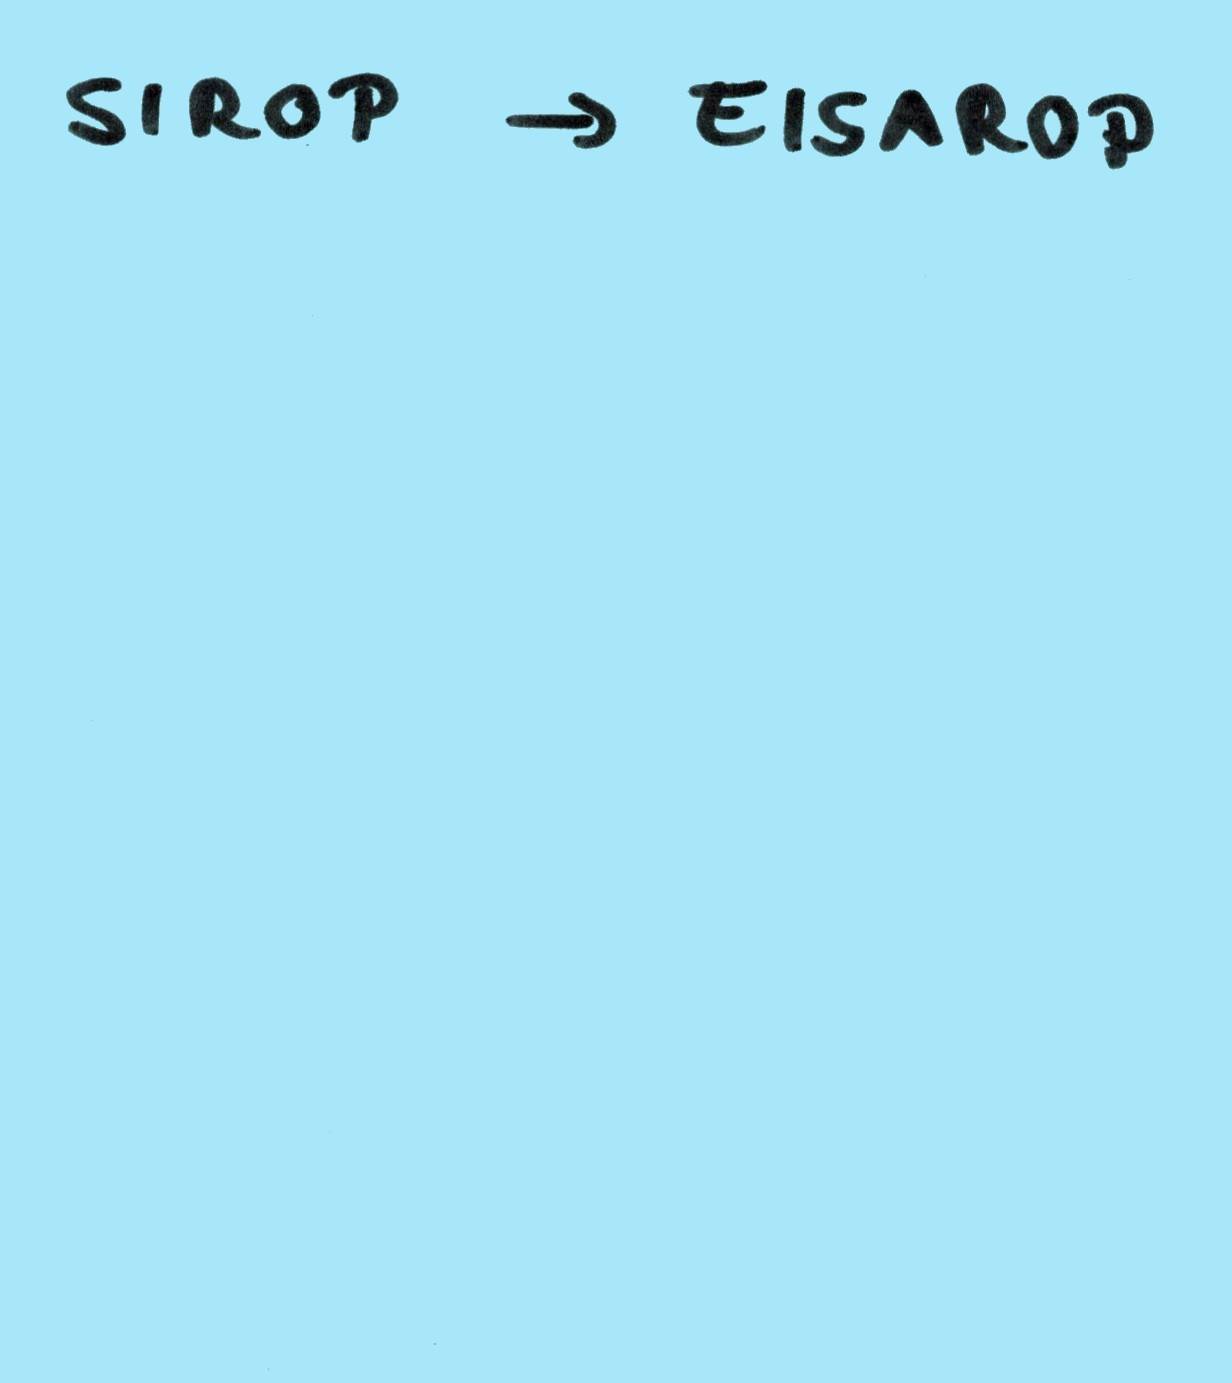 SIROP → EISAROP